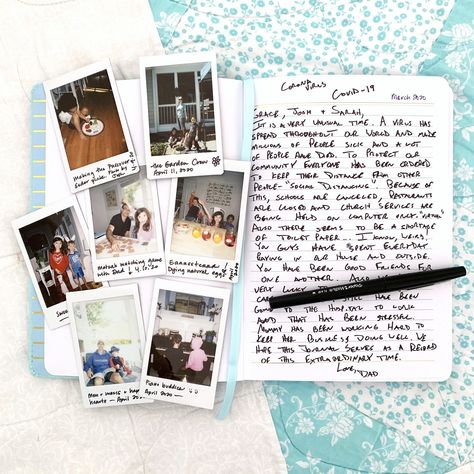 Making the Passover
Seder plate.
the Garden Crew
April 11, 2020
Matzah matching game
with Dad
4.10.20
Dying natural eggs
Mom + 
April 2020
Piano buddies
April 2020
Corona
Virus
Covid-19
March 2020
Grace, Josh + Sarah,
It is a very unusual time. A virus has
spread throughout our world and made
millions of people sick and a lot
of people have died. To protect our
community everyone has been ordered
to keep their distance from other
people - "Social Distancing". Because of
this, schools are canceled, restaurants
are closed and church services are
being held on computer only.
Also there seems to be a shortage
of toilet paper... I know, weird!
You guys have spent everyday
playing in our house and outside.
You have been good friends for
one another. Also
very lucky
have been
to the hospital to work
and that has been stressful.
Mommy has been working hard to
keep her business doing well. We
hope this journal serves as a record
of this extraordinary time.
Love,
Dad